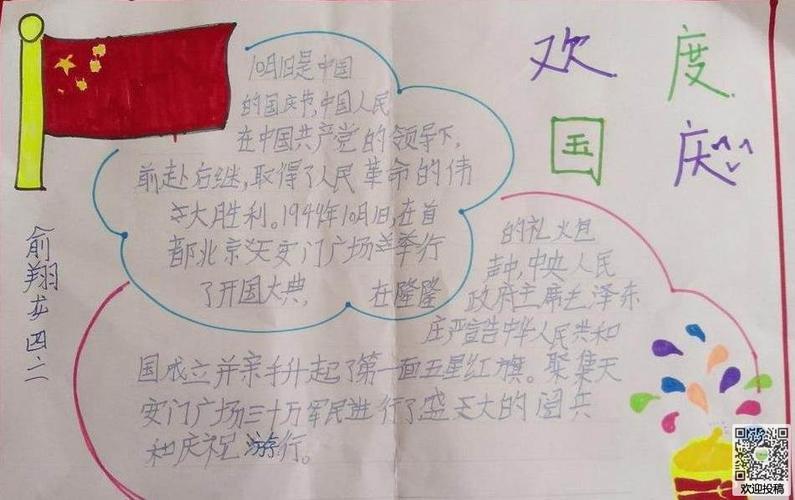 欢度
国庆
10月1日是中国
的国庆节,中国人民
在中国共产党的领导下,
前赴后继,取得了人民革命的伟
大胜利。1949年10月1日,在首
都北京天安门广场举行
了开国大典, 在隆隆
的礼火包
声中,中央人民
政府主席毛泽东
庄严宣告中华人民共和
国成立并亲手升起了第一面五星红旗。聚集天
安门广场三十万军民进行了盛大的阅兵
和庆祝游行。
俞翔龙四二
欢迎投稿